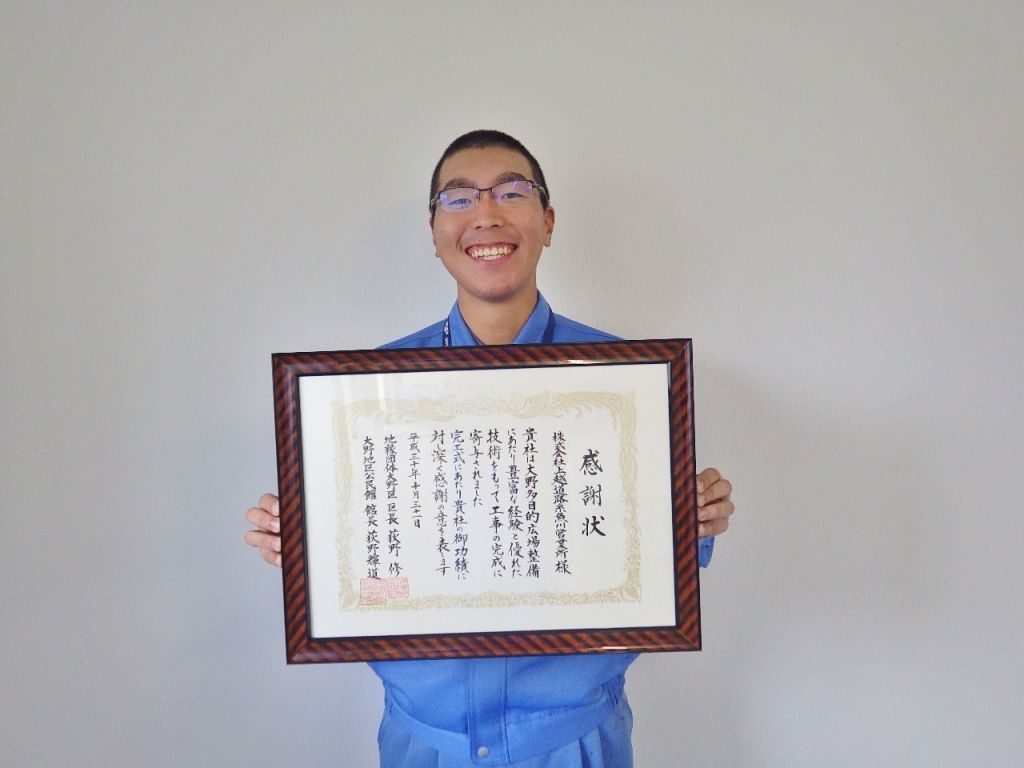 感謝状
株式会社上越道路糸魚川営業所 様
貴社は大野多目的広場整備
にあたり豊富な経験と優れた
技術をもって工事の完成に
寄与されました
完工式にあたり貴社の御功績に
対し深く感謝の意を表します
平成三十年十月三十一日
地縁団体大野区 区長 荻野 修
大野地区公民館 館長 荻野輝道